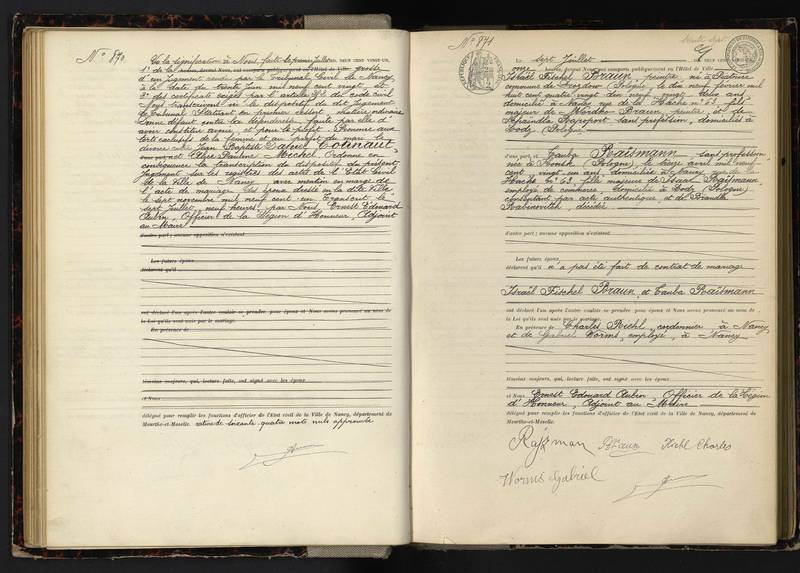 N° 870
Vu la signification à Nous faite le premier juillet MIL NEUF CENT VINGT-UN,
1° de la grosse
d'un jugement rendu par le Tribunal Civil de Nancy
à la date du trente juin mil neuf cent vingt, et
2° des certificats exigés par l'article 252 du code civil
Nous transcrivons ici le dispositif du dit jugement
Le Tribunal Statuant en premier ressort matière ordinaire
Donne défaut contre les défendeurs faute par elle d'
avoir constitué avoué, et pour le profit. Prononce aux
torts exclusifs de la femme et au profit du mari le
divorce entre Jean Baptiste
et Alise Pauline Mechel. Ordonne en
conséquence la transcription du dispositif du présent
jugement sur les registres des actes de l'Etat Civil
de la Ville de Nancy avec mention en marge de
l'acte de mariage des époux dressé en la dite Ville
le sept novembre mil neuf cent un Transcrit le
sept juillet, neuf heures, par Nous, Ernest Edouard
Aubin, Officier de la Légion d'Honneur, Adjoint
au Maire
d'autre part ; aucune opposition n'existant
Les futurs époux
déclarent qu'il
ont déclaré l'un après l'autre vouloir se prendre pour époux et Nous avons prononcé au nom de
la Loi qu'ils sont unis par le mariage.
En présence de
témoins majeurs, qui, lecture faite, ont signé avec les époux
et Nous
délégué pour remplir les fonctions d'officier de l'Etat civil de la Ville de Nancy, département de
Meurthe-et-Moselle.
quatre mots nuls approuvés
N° 871
Le sept Juillet MIL NEUF CENT VINGT-UN
onze heures, devant Nous ont comparu publiquement en l'Hôtel de Ville
Israël Fischel Braun, peintre, né à
commune de (Pologne), le dix neuf février mil
huit cent quatre vingt dix neuf, vingt deux ans,
domicilié à Nancy, rue de la Hache n° 53, fils
majeur de Mordko Braun, peintre, et de
Rapoport sans profession, domiciliés à
Lodz (Pologne)
d'une part, et Tauba Raïtsmann sans profession
née à (Pologne), le treize avril mil neuf
cent, vingt un ans, domiciliée à Nancy, rue de la
Hache n° 53, fille majeure de Isaac Raïtsmann,
employé de commerce, domicilié à Lodz (Pologne)
consentant par acte authentique, et de
Rabinovitch, décédée
d'autre part ; aucune opposition n'existant
Les futurs époux
déclarent qu'il n'a pas été fait de contrat de mariage
Israël Fischel Braun, et Tauba Raïtsmann
ont déclaré l'un après l'autre vouloir se prendre pour époux et Nous avons prononcé au nom de
la Loi qu'ils sont unis par le mariage.
En présence de Charles Riehl, cordonnier à Nancy,
et de Gabriel Worms, employé, à Nancy
témoins majeurs, qui, lecture faite, ont signé avec les époux
et Nous Ernest Edouard Aubin, Officier de la Légion
d'Honneur, Adjoint au Maire
délégué pour remplir les fonctions d'officier de l'Etat civil de la Ville de Nancy, département de
Meurthe-et-Moselle.
Rajzman Braun Riehl Charles
Worms Gabriel